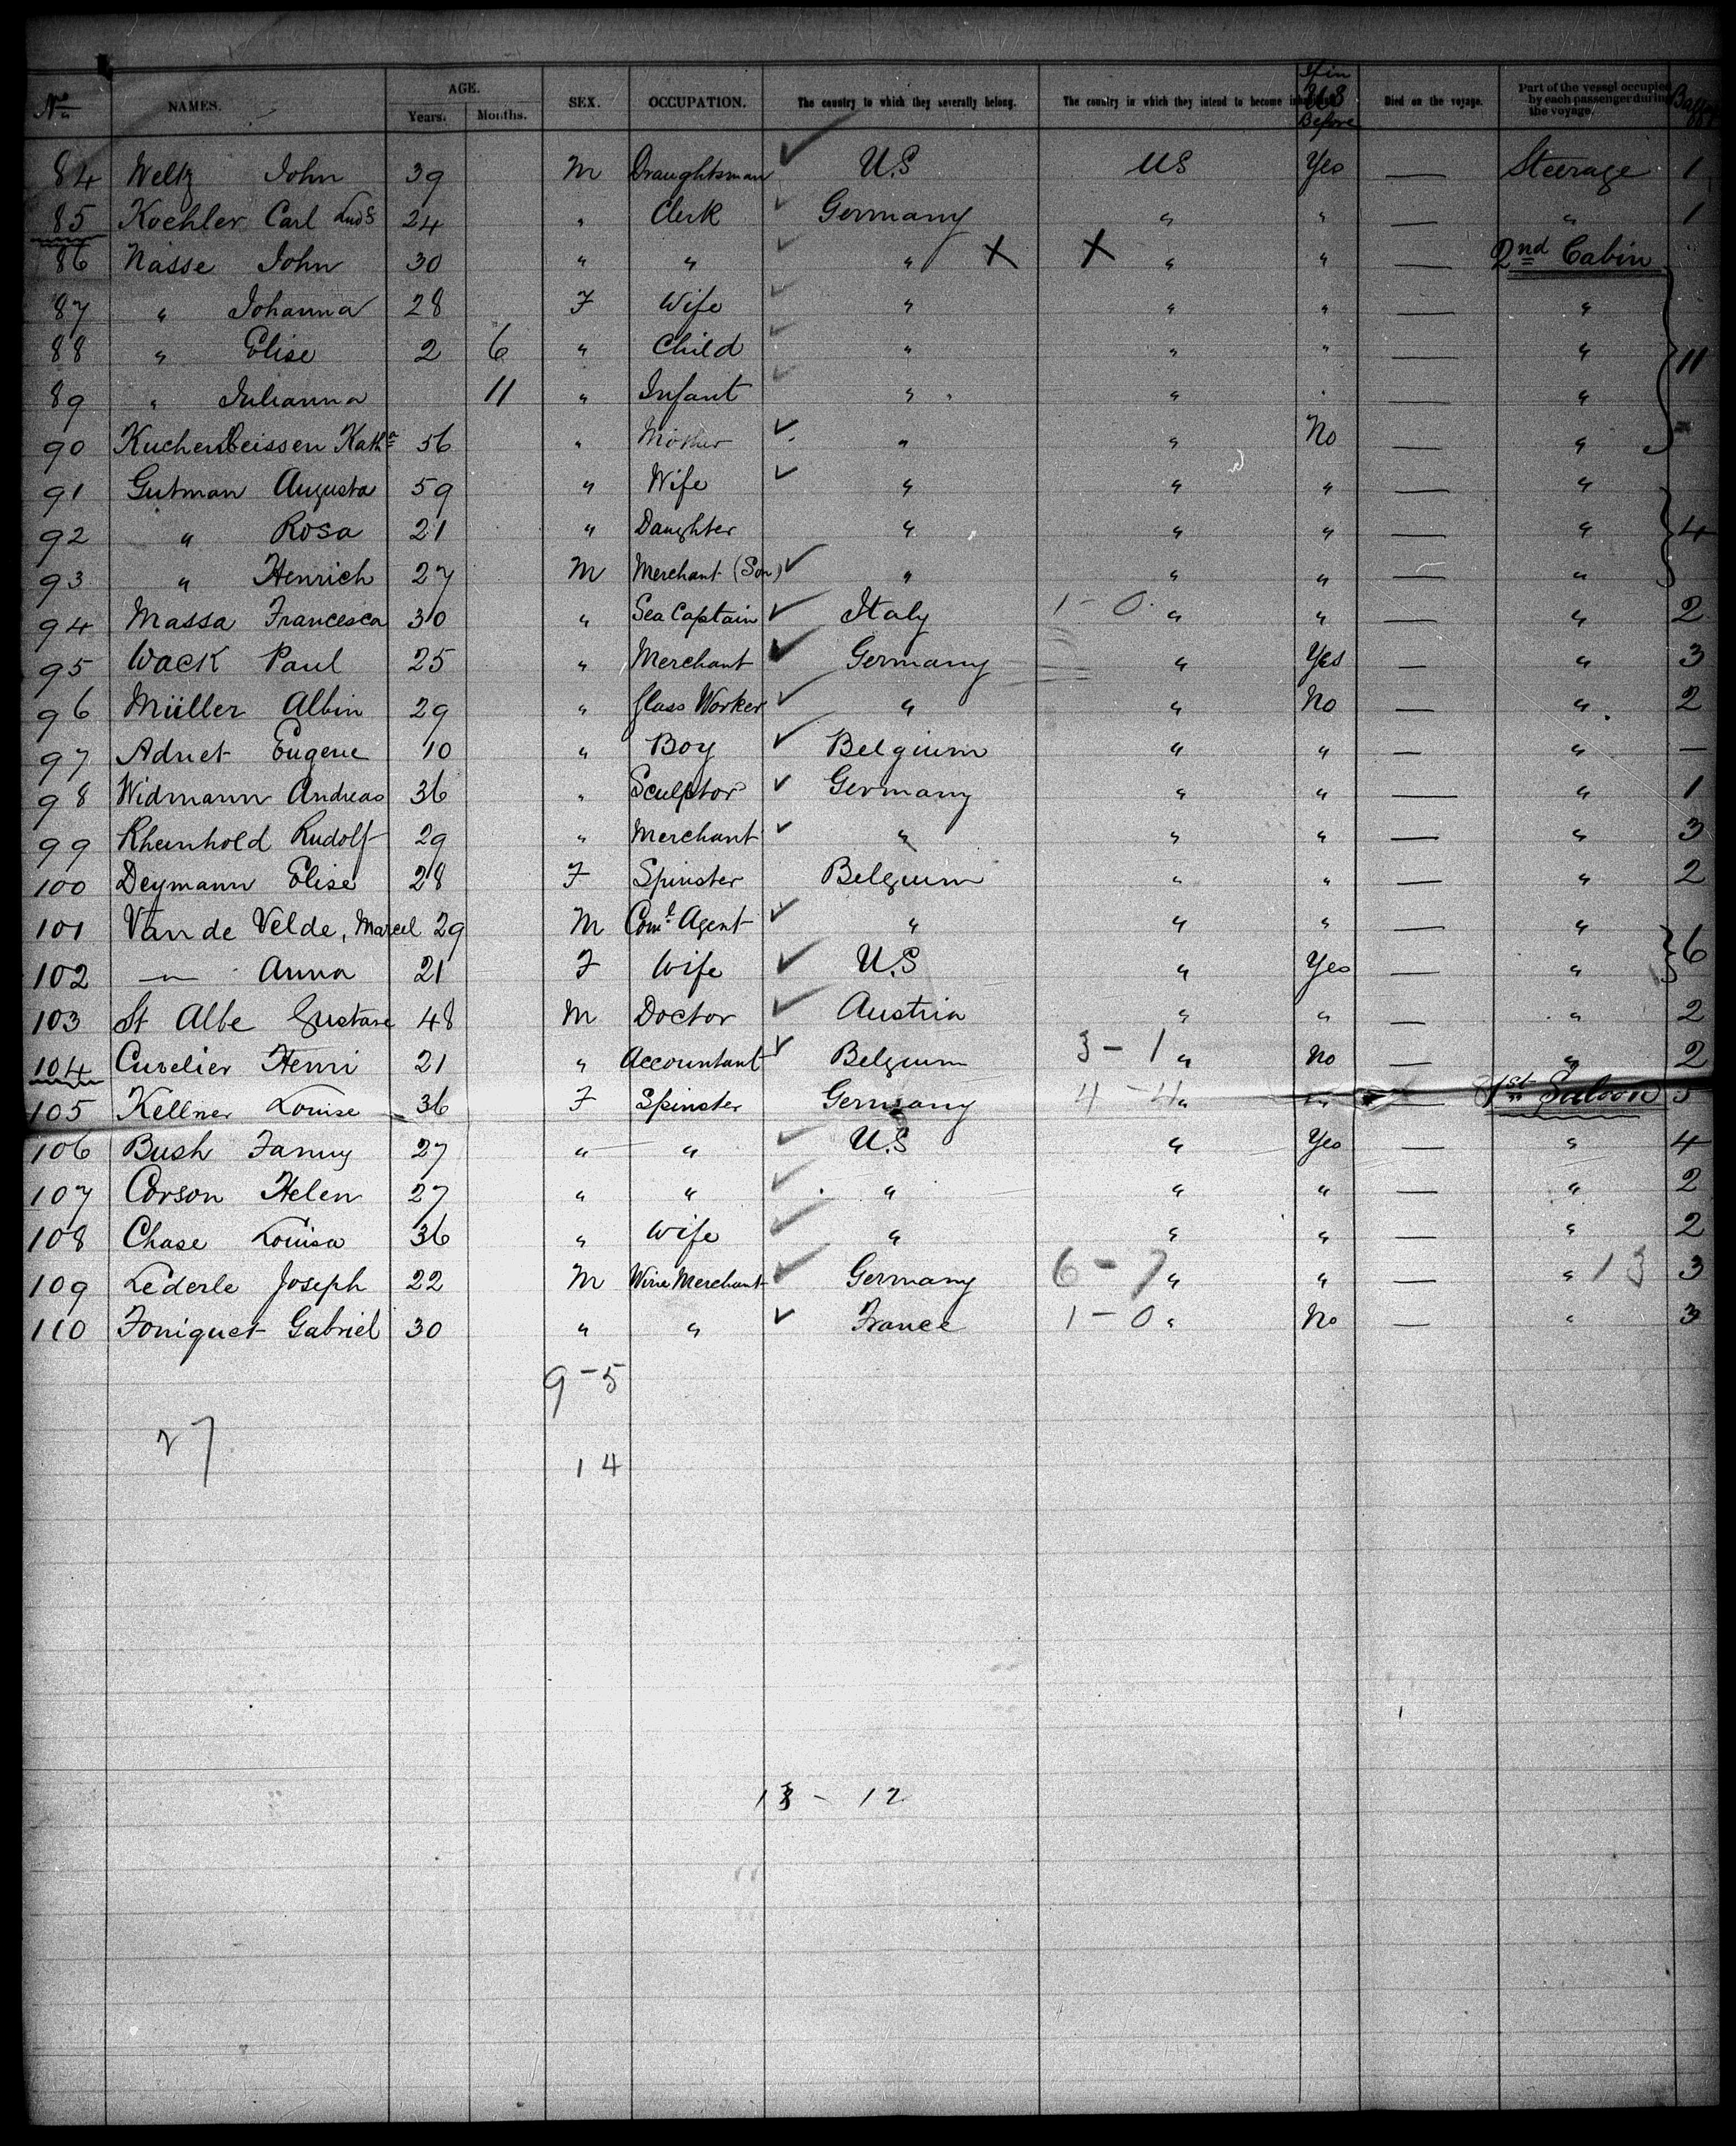 No NAMES. AGE. Years. Months. SEX. OCCUPATION. The country to which they severally belong. The country in which they intend to become inhabitants. If in U.S Before Died on the voyage. Part of the vessel occupied by each passenger during the voyage.
84 Weltz John 39 M Draughtsman ✓ U.S US Yes — Steerage 1
85 Koehler Carl Luds 24 " Clerk ✓ Germany " " — " 1
86 Nasse John 30 " " ✓ " X X " " — 2nd Cabin
87 " Johanna 28 F Wife ✓ " " " — "
88 " Elise 2 6 " Child ✓ " " " — " 11
89 " Julianna 11 " Infant ✓ " " " — "
90 Kuchenbeissen Kath 56 " Mother ✓ " " No — "
91 Gutman Augusta 59 " Wife ✓ " " " — "
92 " Rosa 21 " Daughter " " " — " 4
93 " Henrich 27 M Merchant (Son) ✓ " " " — "
94 Massa Francesca 30 " Sea Captain ✓ Italy 1-0 " " — " 2
95 Wack Paul 25 " Merchant ✓ Germany " Yes — " 3
96 Müller Albin 29 " Glass Worker ✓ " " No — " 2
97 Adnet Eugene 10 " Boy ✓ Belgium " " — " —
98 Widmann Andreas 36 " Sculptor ✓ Germany " " — " 1
99 Rheinhold Rudolf 29 " Merchant ✓ " " " — " 3
100 Deymann Elise 28 F Spinster Belgium " " — " 2
101 Van de Velde, Marcel 29 M Coml Agent ✓ " " " — " 6
102 —"— Anna 21 F Wife ✓ U.S " Yes — "
103 St Albe Gustave 48 M Doctor ✓ Austria " " — " 2
104 Cuvelier Henri 21 " Accountant ✓ Belgium 3-1 " No — " 2
105 Kellner Louise 36 F Spinster Germany 4-4 " " — 1st Saloon 5
106 Bush Fanny 27 " " ✓ U.S " Yes — " 4
107 Corson Helen 27 " " ✓ " " " — " 2
108 Chase Louisa 36 " Wife ✓ " " " — " 2
109 Lederle Joseph 22 M Wine Merchant ✓ Germany 6-7 " " — " 13 3
110 Foniquet Gabriel 30 " " ✓ France 1-0 " No — " 3
9-5
27
14
13 - 12